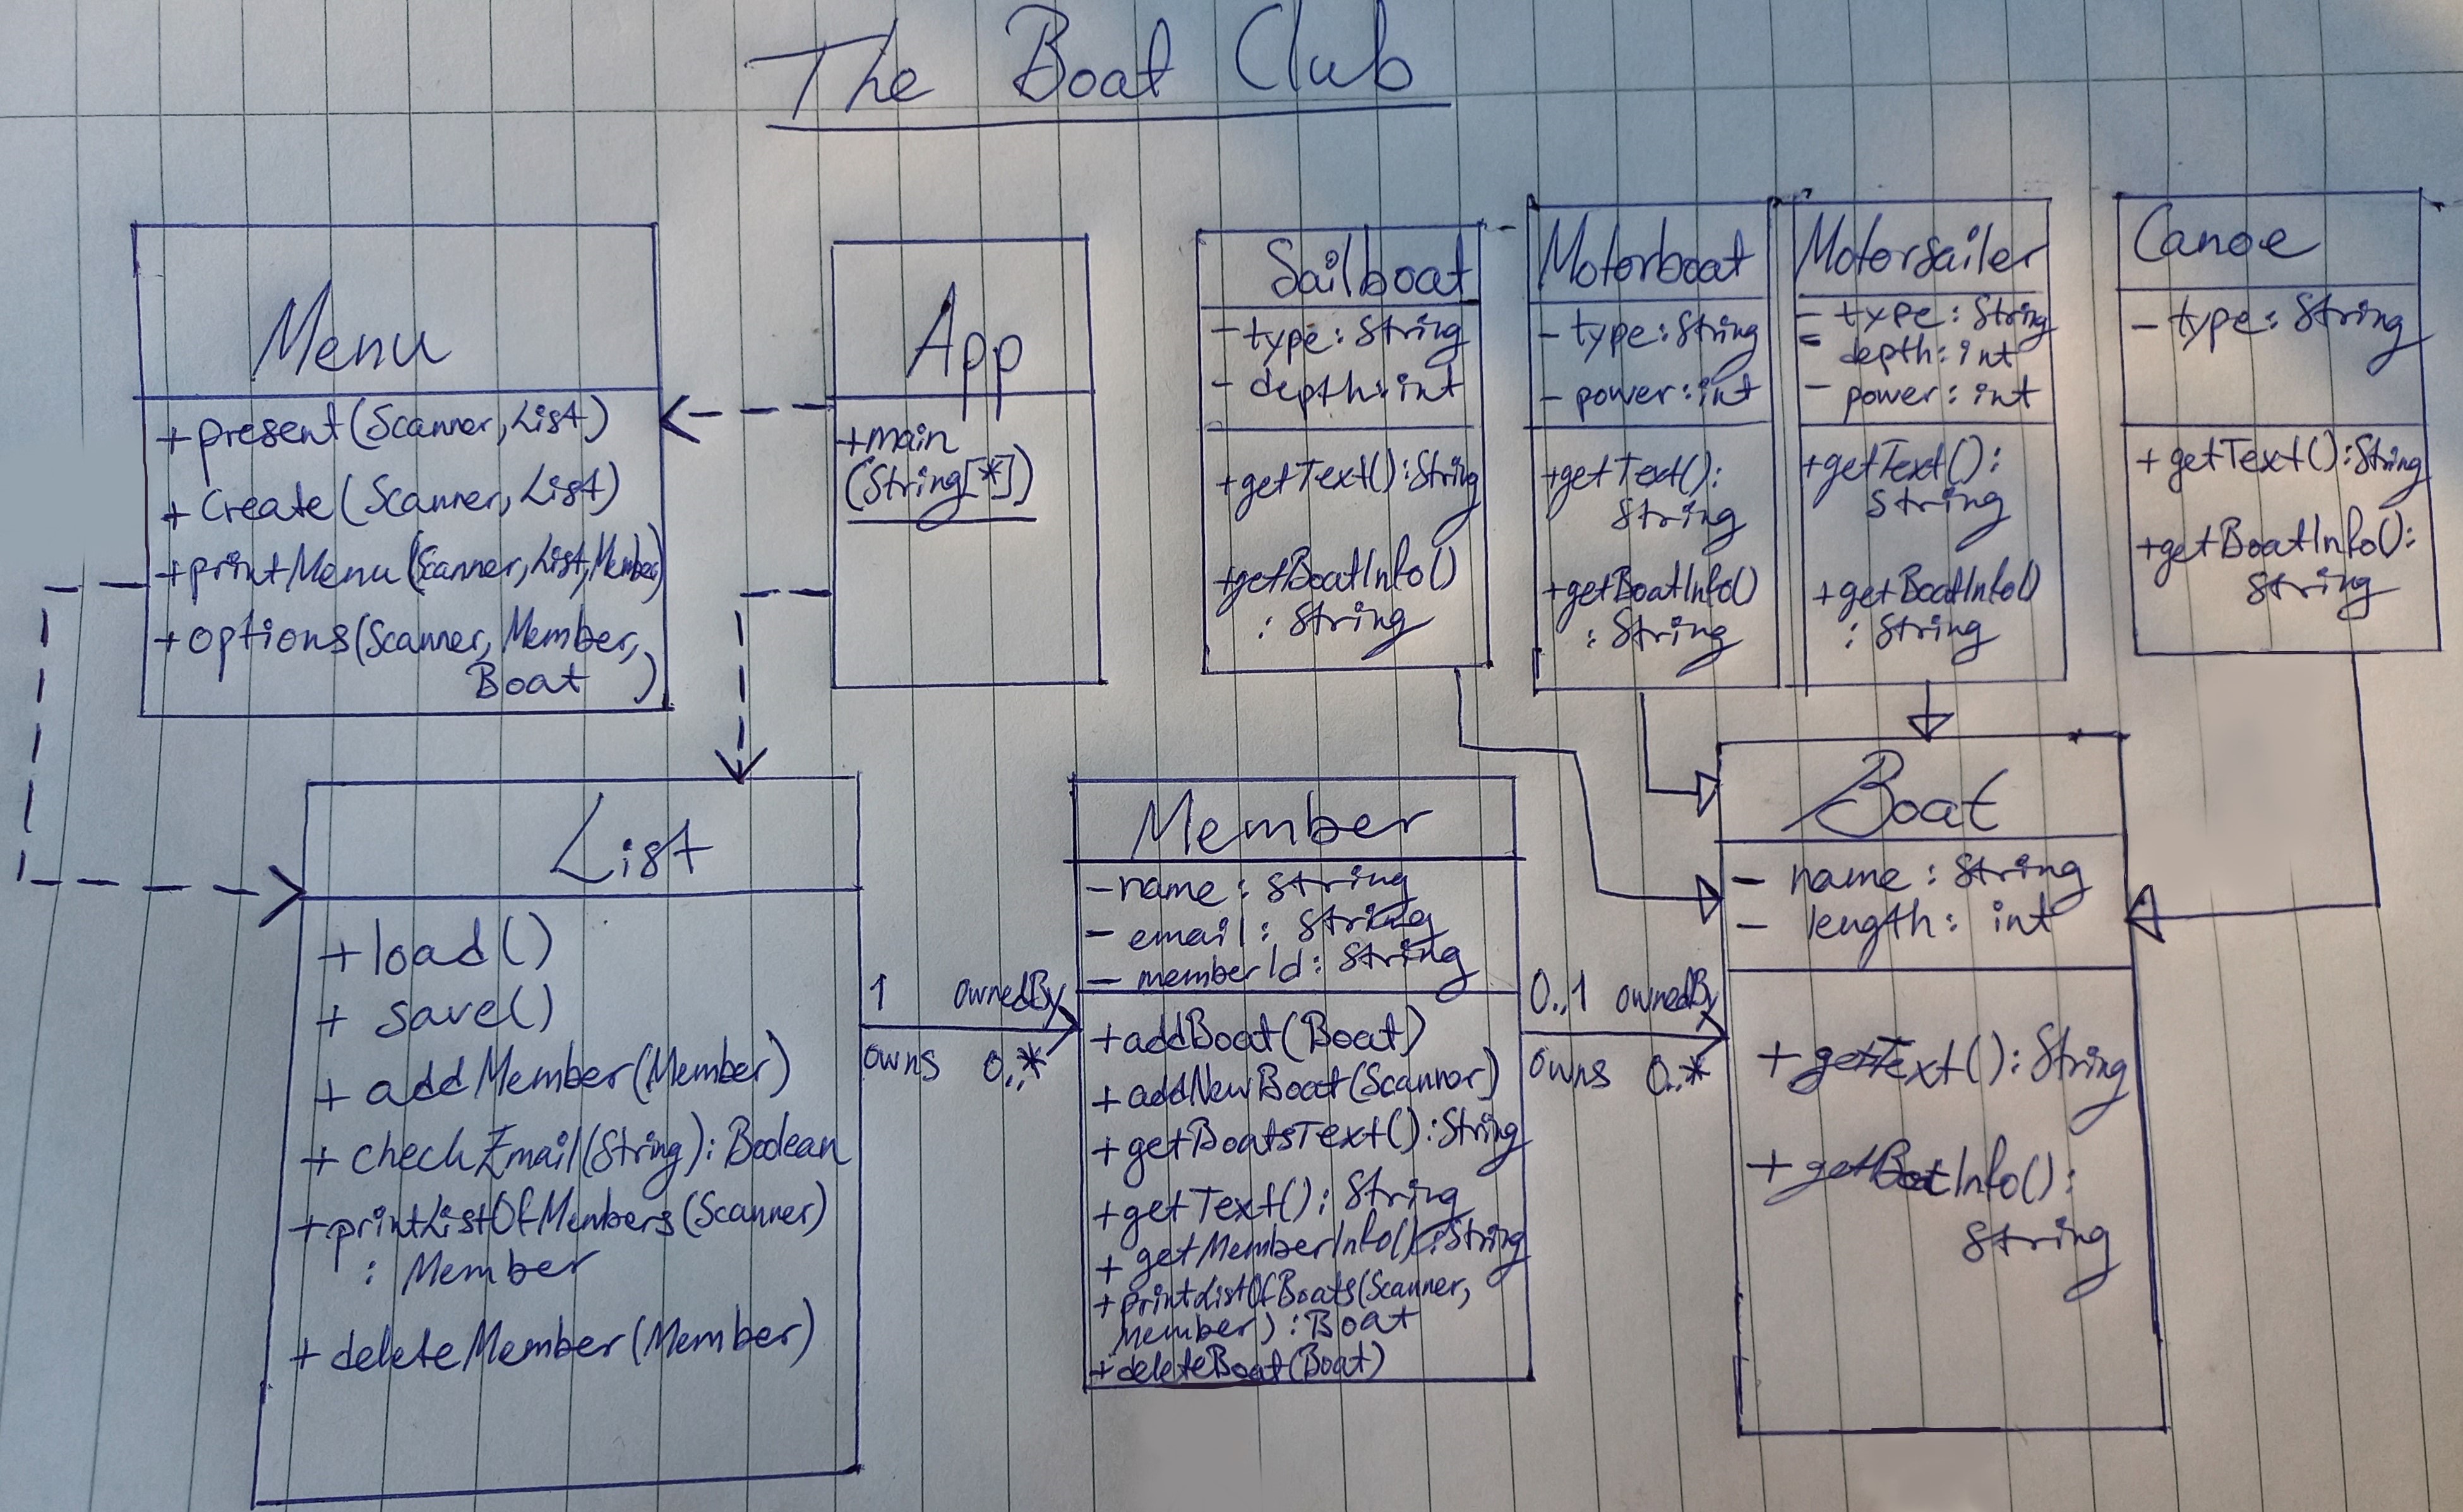 The Boat Club
Menu
+ present(Scanner, List)
+ create(Scanner, List)
+ printMenu(Scanner, List, Member)
+ options(Scanner, Member,
Boat )
App
+main
(String[*])
Sailboat
- type: String
- depth: int
+getText(): String
+getBoatInfo()
: String
Motorboat
- type: String
- power: int
+getText():
String
+getBoatInfo()
: String
Motorsailer
- type: String
- depth: int
- power: int
+getText():
String
+getBoatInfo()
: String
Canoe
- type: String
+ getText(): String
+getBoatInfo():
String
List
+ load()
+ save()
+ addMember(Member)
+ checkEmail(String): Boolean
+printListOfMembers(Scanner)
: Member
+ deleteMember(Member)
1 ownedBy
owns 0..*
Member
- name: String
- email: String
- memberId: String
+addBoat(Boat)
+addNewBoat(Scannor)
+getBoatsText(): String
+getText(): String
+ getMemberInfo(): String
+ printListOfBoats(Scanner,
Member): Boat
+deleteBoat(Boat)
0..1 ownedBy
owns 0..*
Boat
- name: String
- length: int
+ getText(): String
+ getBoatInfo():
String